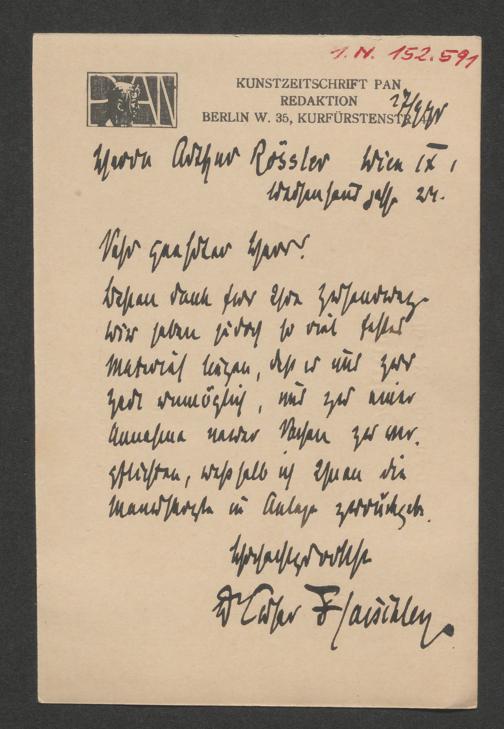 I.N. 152.591
PAN
KUNSTZEITSCHRIFT PAN
REDAKTION
BERLIN W. 35, KURFÜRSTENSTR.
Herrn Arthur Rössler Wien IX,
Waisenhausgasse
Sehr geehrter Herr!
Besten Dank für Ihre Zusendung.
Wir haben jedoch so viel festes
Material liegen, daß es uns zur
Zeit unmöglich, uns zu einer
Annahme neuer Sachen zu ver-
pflichten, weßhalb ich Ihnen die
Manuskripte in Anlage zurückgebe.
Hochachtungsvollst
Dr Cäsar Flaischlen.